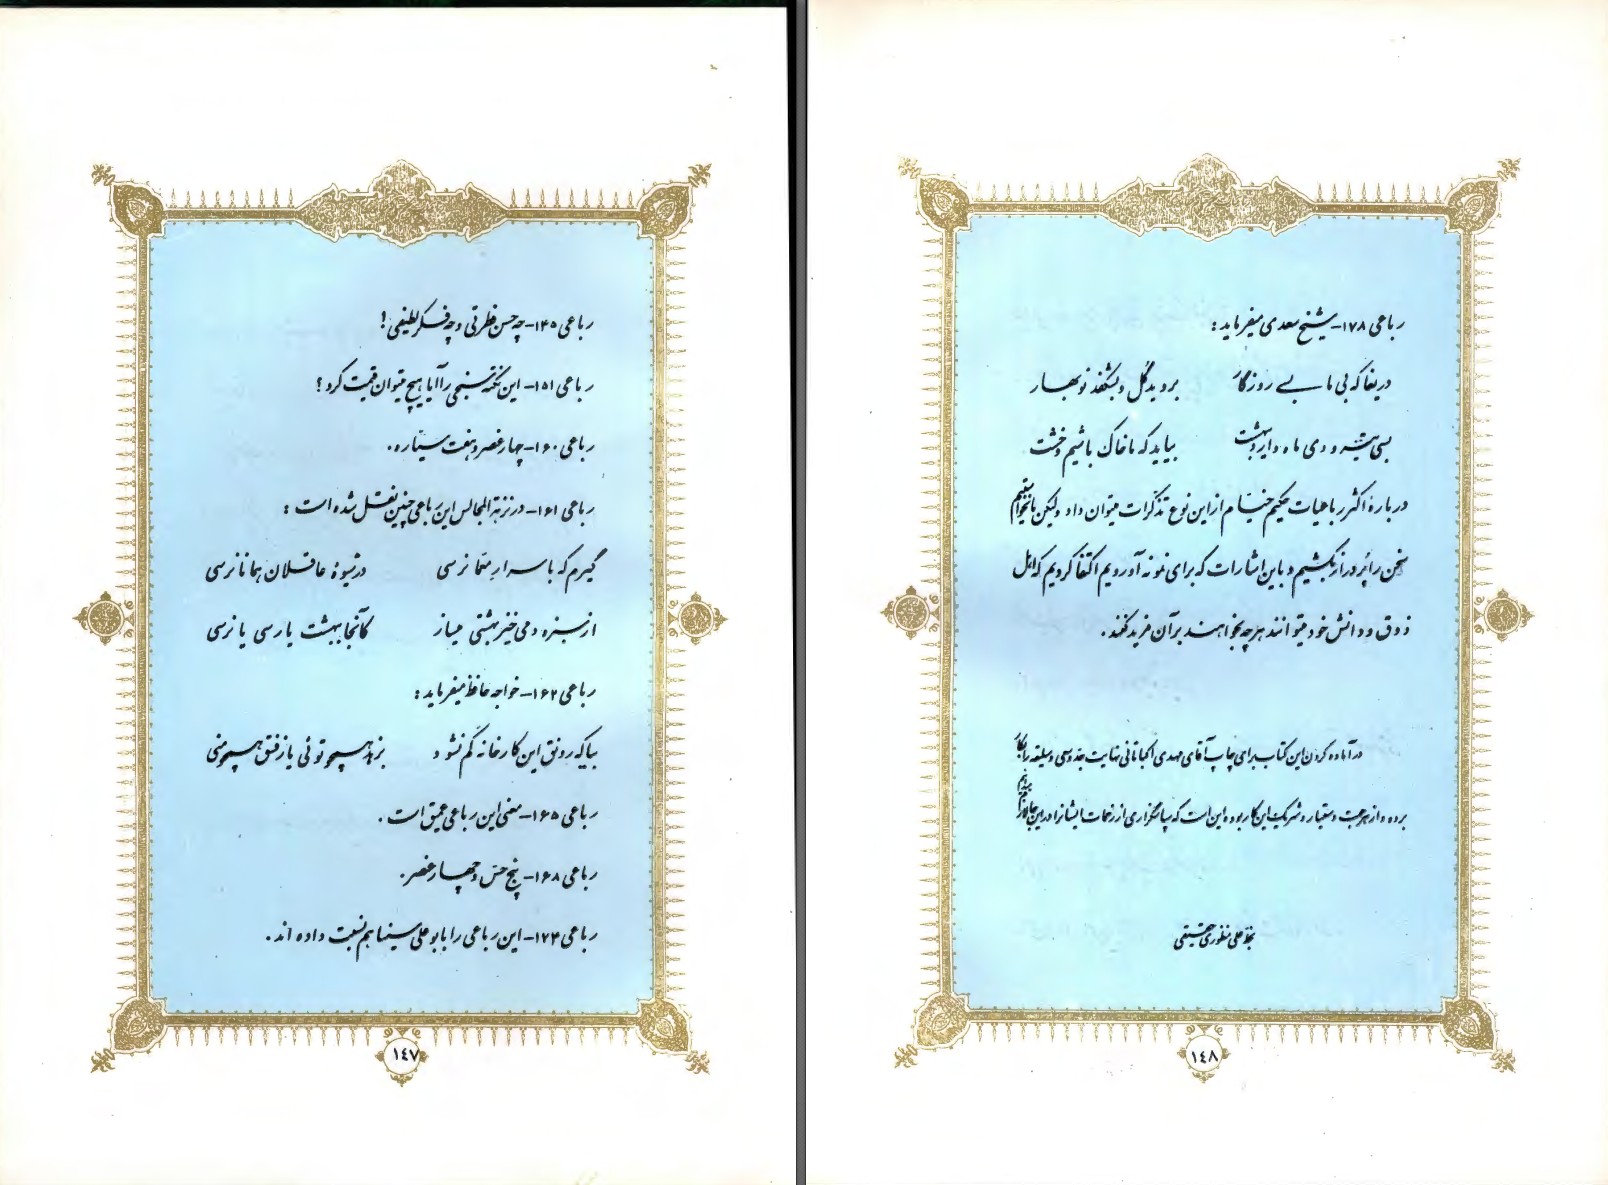 رباعی ۱۴۵- چه حسن فطرتی و چه فکر لطیفی!
رباعی ۱۵۱- این نکته سنجی را آیا هیچ میتوان قیمت کرد؟
رباعی ۱۶۰- چهار عنصر و هفت سیّاره.
رباعی ۱۶۱- در نزهة المجالس این رباعی چنین نقل شده است:
گیرم که باسرار معمّا نرسی در شیوهٔ عاقلان همانا نرسی
از سبزه و می خیز بهشتی میساز کانجا بهشت یا رسی یا نرسی
رباعی ۱۶۲- خواجه حافظ میفرماید:
بیا که رونق این کارخانه کم نشود بزهد همچو توئی یا زفسق همچو منی
رباعی ۱۶۵- معنی این رباعی عمیق است.
رباعی ۱۶۸- پنج حسّ و چهار عنصر.
رباعی ۱۷۴- این رباعی را بابو علی سینا هم نسبت داده اند.
١٤٧
رباعی ۱۷۸- شیخ سعدی میفرماید:
دریغا که بی ما بسی روزگار بروید گل و بشکفد نوبهار
بسی تیر و دی ماه و اردیبهشت بیاید که ما خاک باشیم و خشت
در بارهٔ اکثر رباعیات حکیم خیّام از این نوع تذکّرات میتوان داد ولیکن نخواستیم
سخن را پُر دراز بکشیم و باین اشارات که برای نمونه آوردیم اکتفا کردیم که اهل
ذوق و دانش خود میتوانند هر چه بخواهند بر آن مزید کنند.
در آماده کردن این کتاب برای چاپ آقای مهدی اکباتانی نهایت جد و سعی و سلیقه را بکار
برده و از هر جهت دستیار و شریک این کار بوده این است که سپاسگزاری از زحمات ایشانرا در این جا لازم میدانم
١٤٨